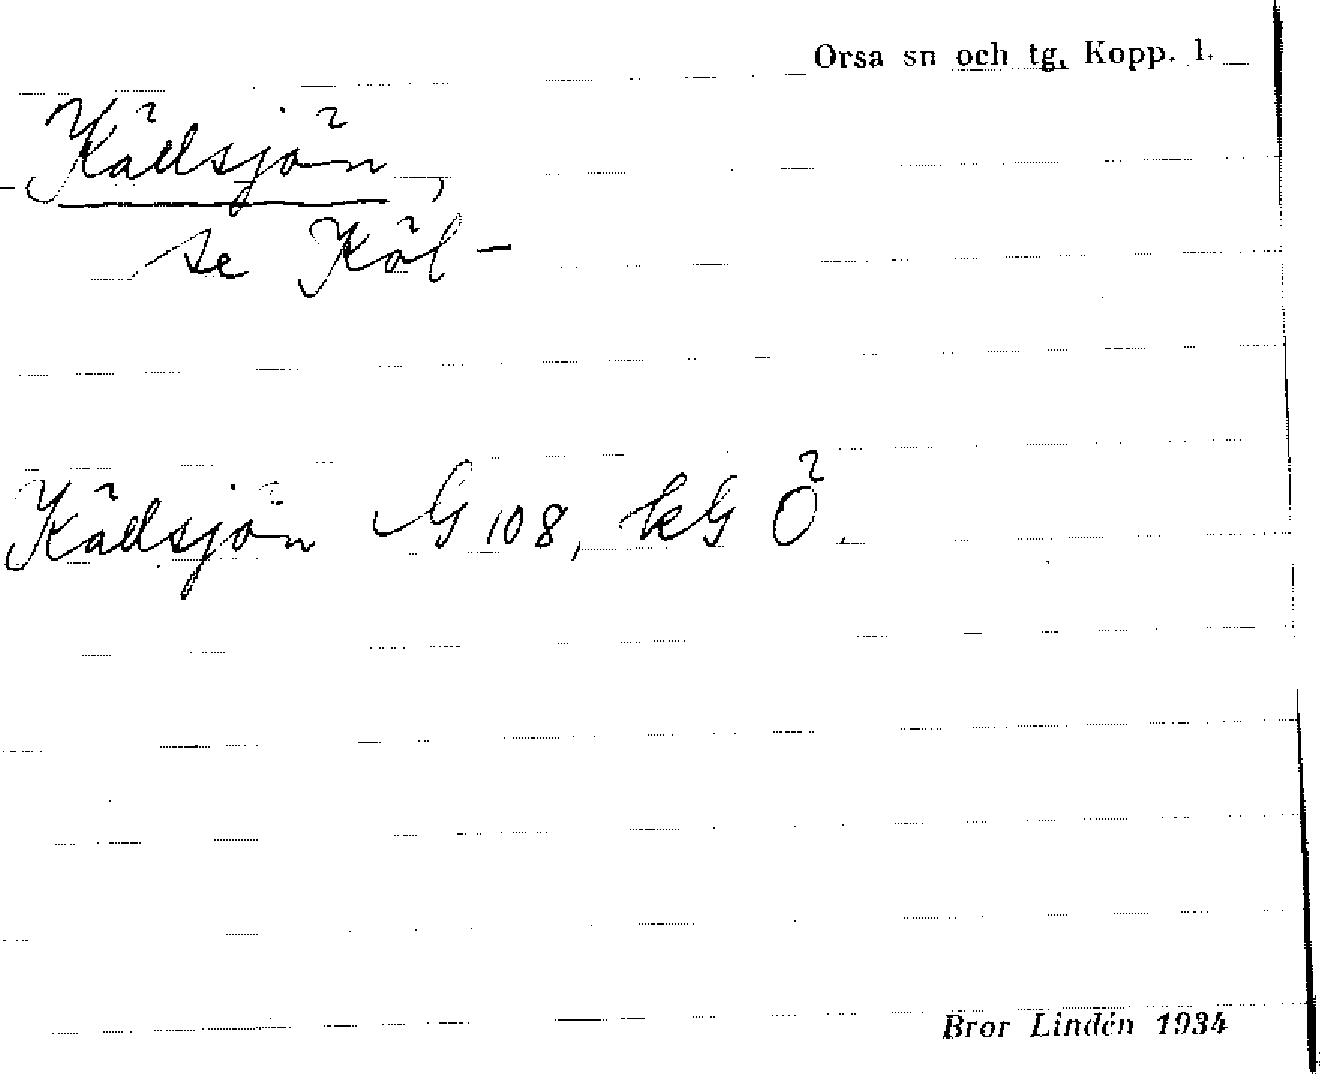 Orsa sn och tg. Kopp. l.
Källsjön,
se Köl-
Källsjön G 108, kG Ö.
Bror Lindén 1934